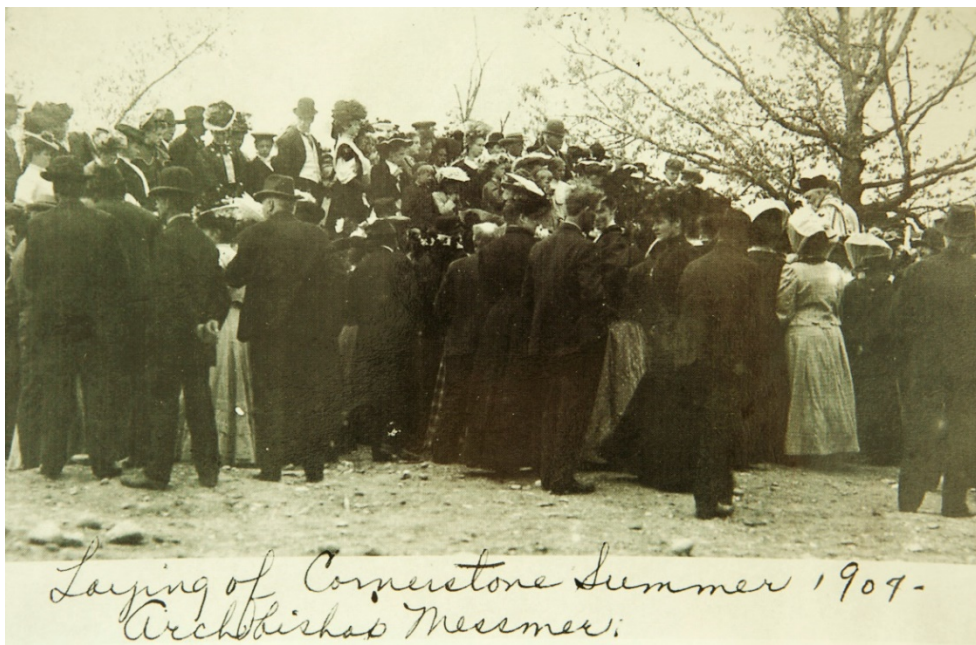 Laying of Cornerstone Summer 1909-
Archbishop Messmer.